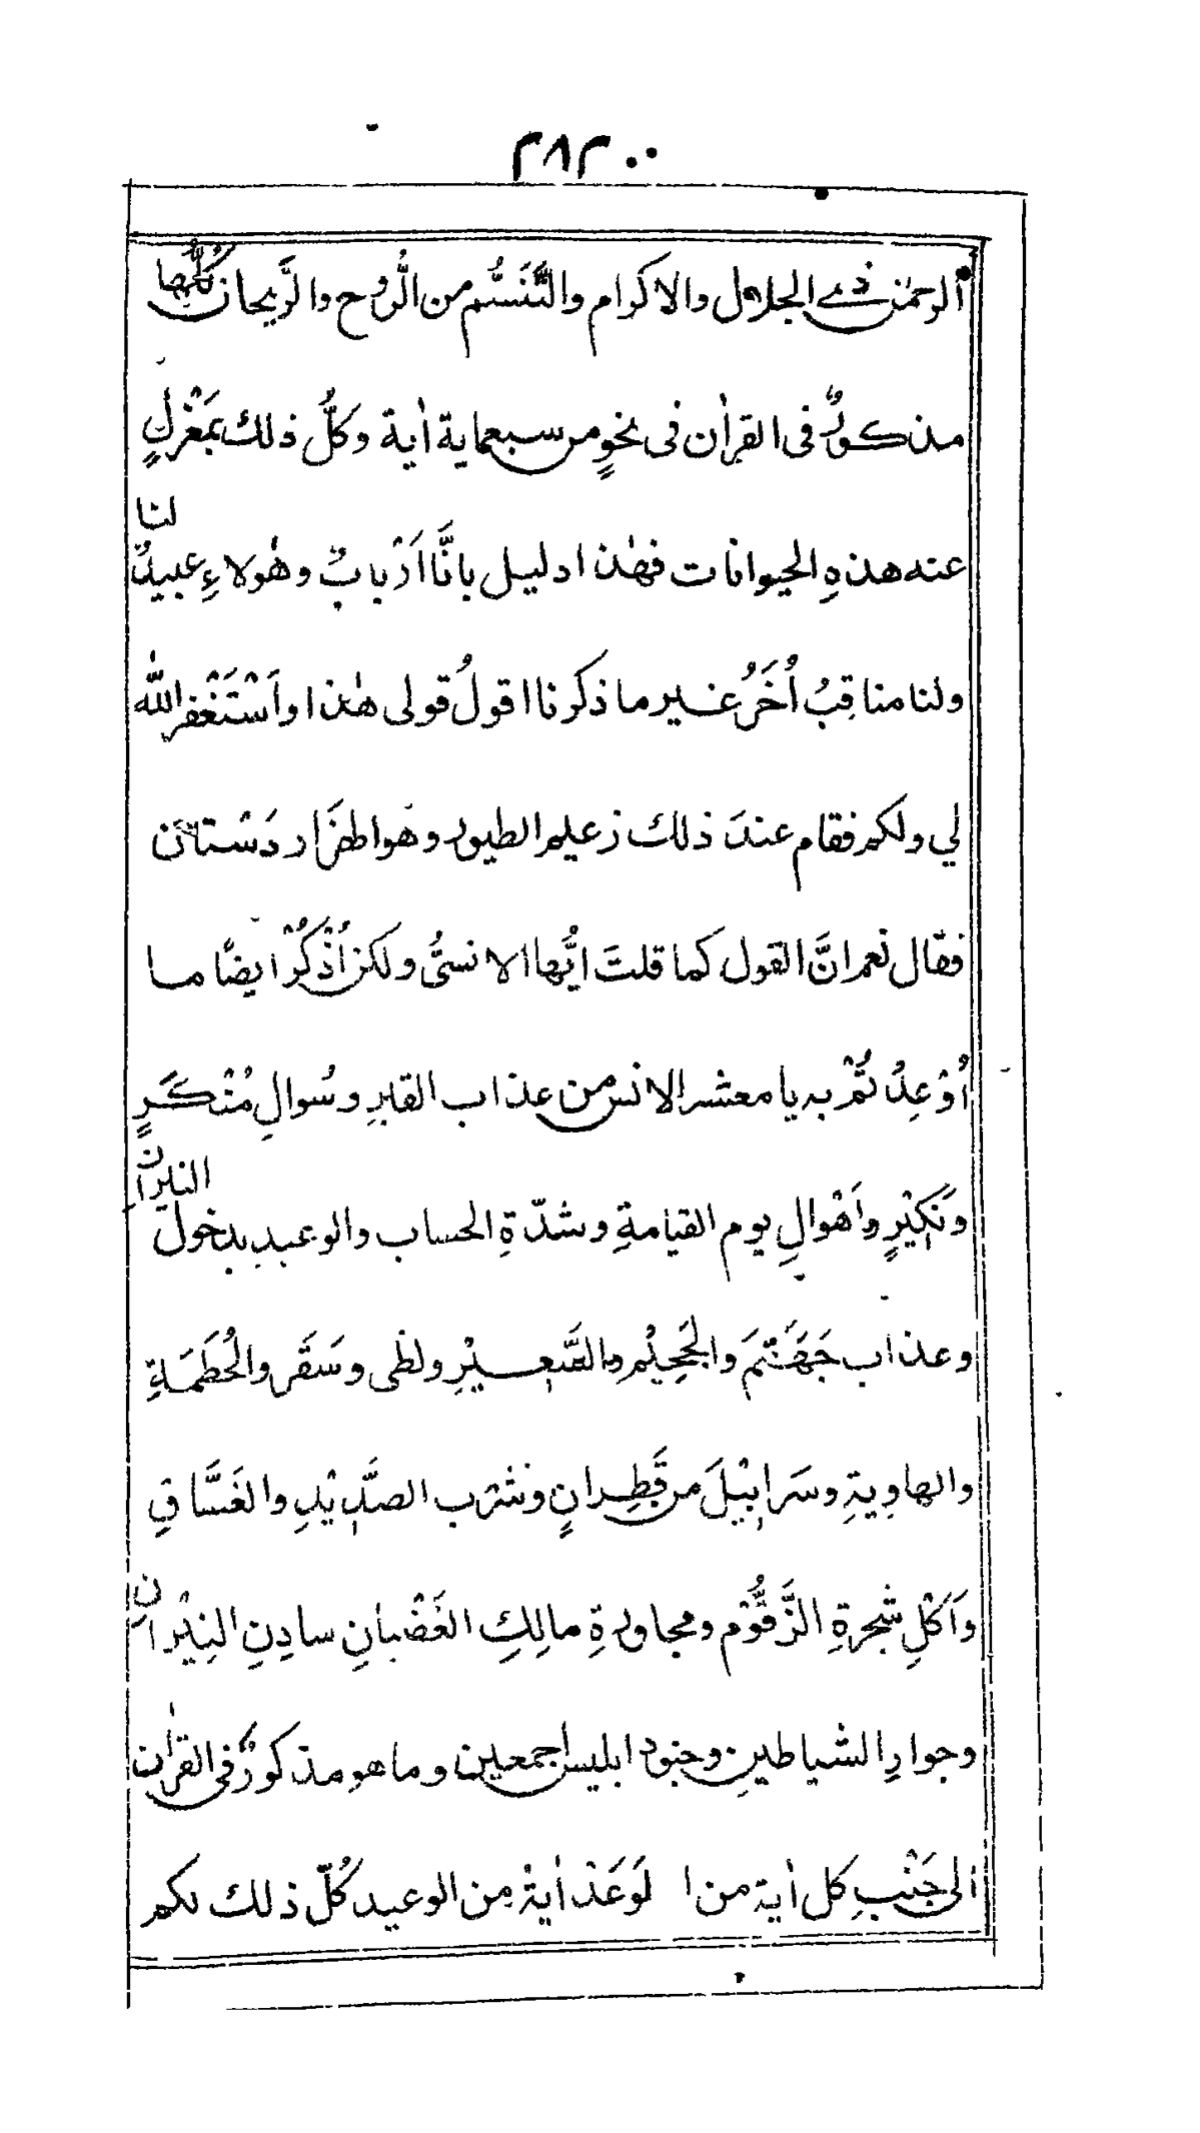 ٢٨٢
الرحمٰن ذي الجلال والاكرام والتَّنَسُّم من الرُّوح والرَّيحان كُلُّها
مذكورٌ فى القراٰن فى نحوٍ من سبعماية اٰية وكلُّ ذلك بمَعْزلٍ
عنه هذهِ الحيوانات فهٰذا دليل بانَّا اَرْبابٌ وهٰولاءِ عبيدٌ لنا
ولنا مناقِبُ اُخَرُ غير ما ذكرنا اقولُ قولى هٰذا واَسْتَغْفر اللّٰه
لي ولكم فقام عندَ ذلك زعيلم الطيور وهوا لهزار دَسْتان
فقال نعم انَّ القول كما قلتَ ايُّها الانسىُّ ولكن اُذْكُرْ ايضًا ما
اُوْعِدْ تُمْ به يا معشر الانس من عذاب القبرِ وسُوالِ مُنْكَرٍ
ونَكِيْرٍ واَهْوالِ يوم القيامةِ وشدّةِ الحساب والوعيدِ بدخول النيران
وعذاب جَهَنَّمَ والجَحِيْمِ والسَّعِيْرِ ولظى وسَقَر والحُطَمَةِ
والهاوِيةِ وسَرابِيْلَ من قَطِرانٍ وشرب الصَّدِيْدِ والغَسَّاقِ
واَكْلِ شجرةِ الزَّقُّوْم ومجاورةِ مالِكِ الغَضْبانِ سادِنِ النِيْرانِ
وجوارِ الشياطينِ وجنود ابليس اجمعين وما هو مذكورٌ فى القراٰن
الى جَنْبِ كل اٰية من ا لوَعَدْ اٰيةٌ من الوعيد كُلّ ذلك لكم